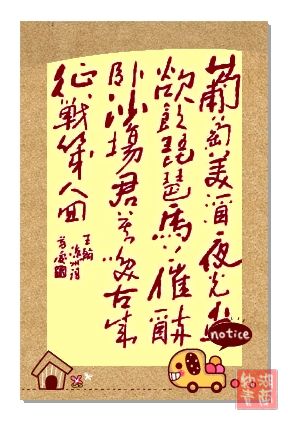 葡萄美酒夜光杯
欲飲琵琶馬上催醉
卧沙場君莫笑古来
征戰幾人回
王翰
凉州词
notice